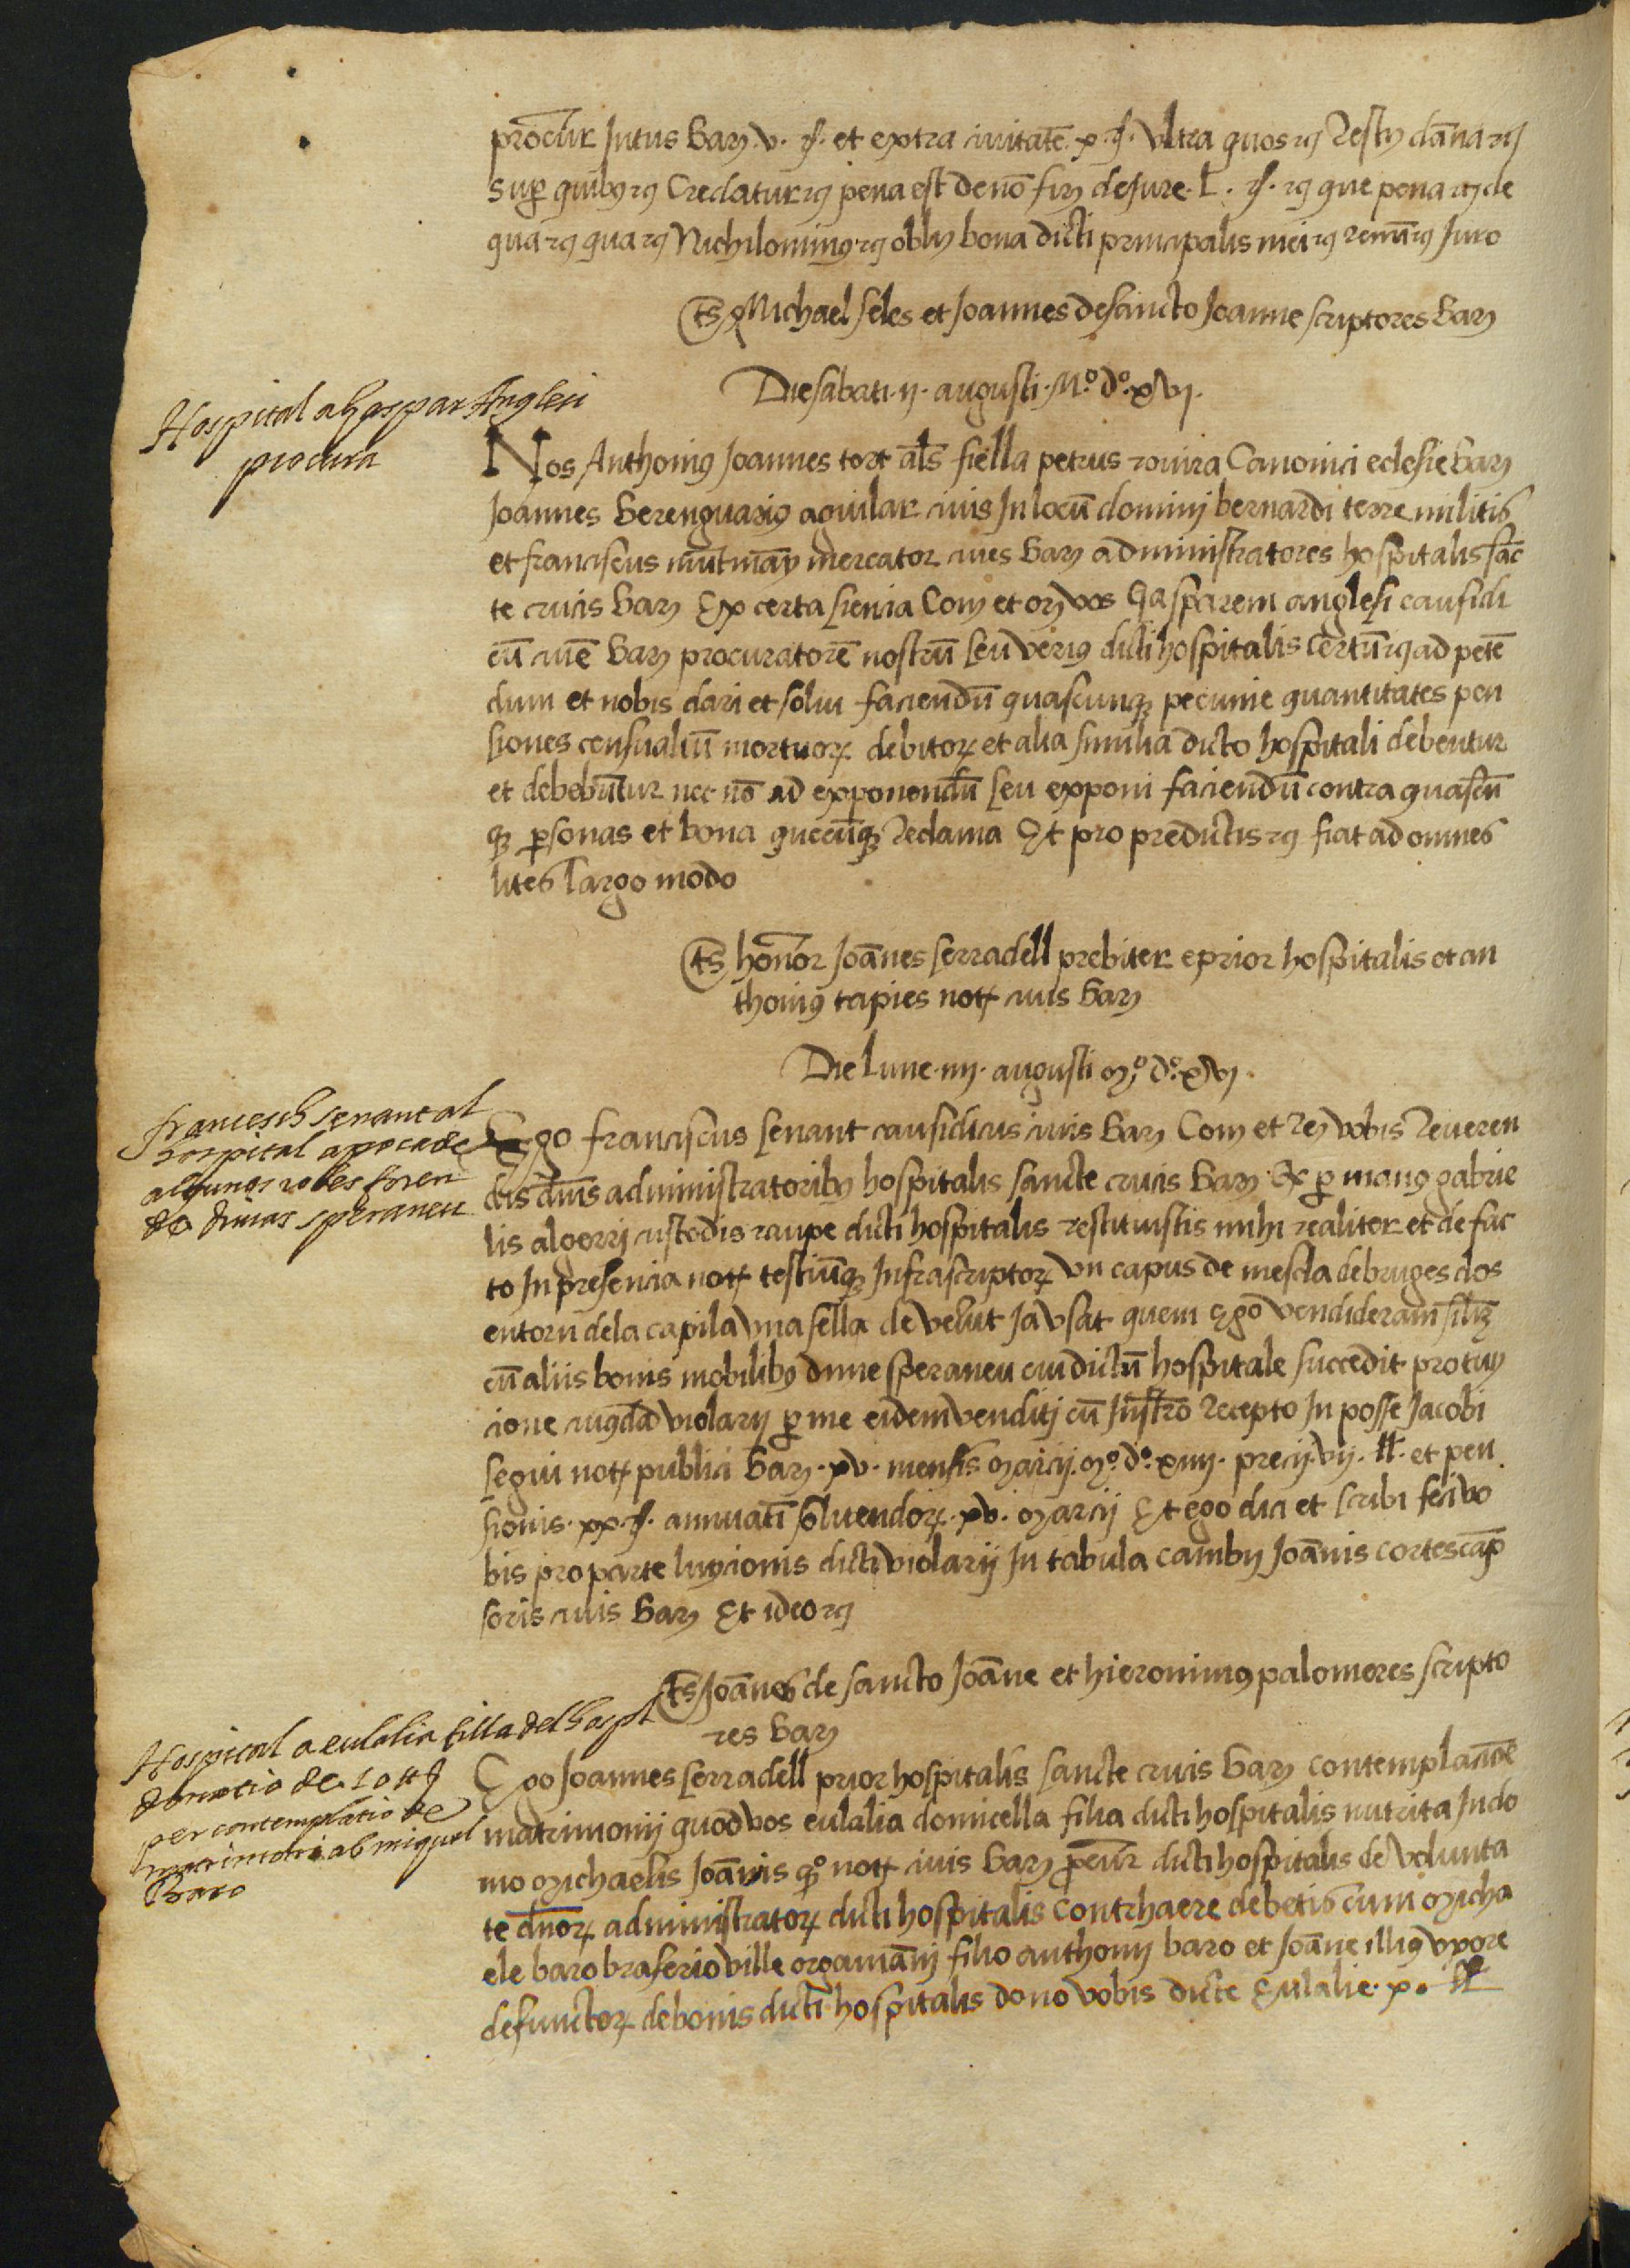 procur̄ Intus Barꝫ. v. s. et extra civitatē. x. s. Ultra quos rꝫ Restꝫ dāna rꝫ
super quibꝫ rꝫ Credatur rꝫ pena est de nō firꝫ de Jure. L. s. rꝫ que pena rꝫ de
qua rꝫ qua rꝫ Nichilominꝰ rꝫ oblꝫ bona dicti principalis mei rꝫ renūrꝫ Juro
Ts Michael seles et Joannes de sancto Joanne scriptores Barꝫ
Die sabati .ij. augusti. Mº. dº. xvj.
Hospital a Gaspar Anglesi
procura
Nos Anthoniꝰ Joannes tort al̄s fiella petrus rovira Canonici eclesie Barꝫ
Joannes Berenguariꝰ aguilar civis In locū dominj bernardi terre militis
et franciscus mūtmāy mercator cives Barꝫ administratores hospitalis sāc
te crucis Barꝫ Ex certa sciencia Comꝫ et orꝫ vos Gasparem anglesi causidi
cū civē Barꝫ procuratorē nostrū seu veriꝰ dicti hospitalis certū rꝫ ad petē
dum et nobis dari et solvi faciendū quascunqꝫ pecunie quantitates pen
siones censualiū mortuorꝝ debitorꝝ et alia similia dicto hospitali debentur
et debebūtur nec nō ad exponendū seu exponi faciendū contra quascū
qꝫ ꝑsonas et bona quecūqꝫ reclama Et pro predictis rꝫ fiat ad omnes
lites largo modo
Ts honor̄ Joānes serradell prebiter e prior hospitalis et an
thoniꝰ tapies notꝝ civis Barꝫ
Die lune .iiij. augusti Mº. dº. xvj.
francesch senant al
hospital apoca de
algunes robes foren
de dimas speraneu
Ego franciscus senant causidicus civis Barꝫ Comꝫ et Reꝫ vobis Reveren
dis dn̄is administratoribꝫ hospitalis sancte crucis Barꝫ Ex ꝑ manꝰ gabrie
lis algerrj custodis raupe dicti hospitalis restituistis mihi realiter et de fac
to In presencia notꝝ testiūqꝫ Infrascriptorꝝ un capus de mescla de bruges clos
entorn de la capila una sella de velut Ja usat quem Ego vendideram
cū aliis bonis mobilibꝫ dime speraneu cui dictū hospitale succedit pro tuy
cione cuꝰdā violarij ꝑ me eidem venditi cū Instrō recepto In posse Jacobi
segui notꝝ publici Barꝫ. xv. mensis Marcij. Mº. dº. xiiij. precij. vij. ll. et pen
sionis. xx. s. annuatī solvendorꝝ. xv. Marcij Et ego dici et scribi feci vo
bis pro parte luycionis dicti violarij In tabula cambij Joānis cortes cāp
soris civis Barꝫ Et ideo rꝫ
Ts Joānes de sancto Joāne et hieronimꝰ palomeres scripto
res Barꝫ
Hospital a eulalia filla del hospl
donatio de 10 ll
per contemplatio de
matrimoni ab miquel
Baro
Ego Joannes serradell prior hospitalis sancte crucis Barꝫ contemplac̄ōe
matrimonij quod vos eulalia domicella filia dicti hospitalis nutrita In do
mo Michaelis Joānis qº notꝝ civis Barꝫ ꝓcur̄ dicti hospitalis de volunta
te dn̄orꝝ administratorꝝ dicti hospitalis contrhaere debetis cum Micha
ele baro braserio ville orgamānj filio anthonij baro et Joāne illiꝰ uxore
defunctorꝝ de bonis dicti hospitalis dono vobis dicte Eulalie. x. ll